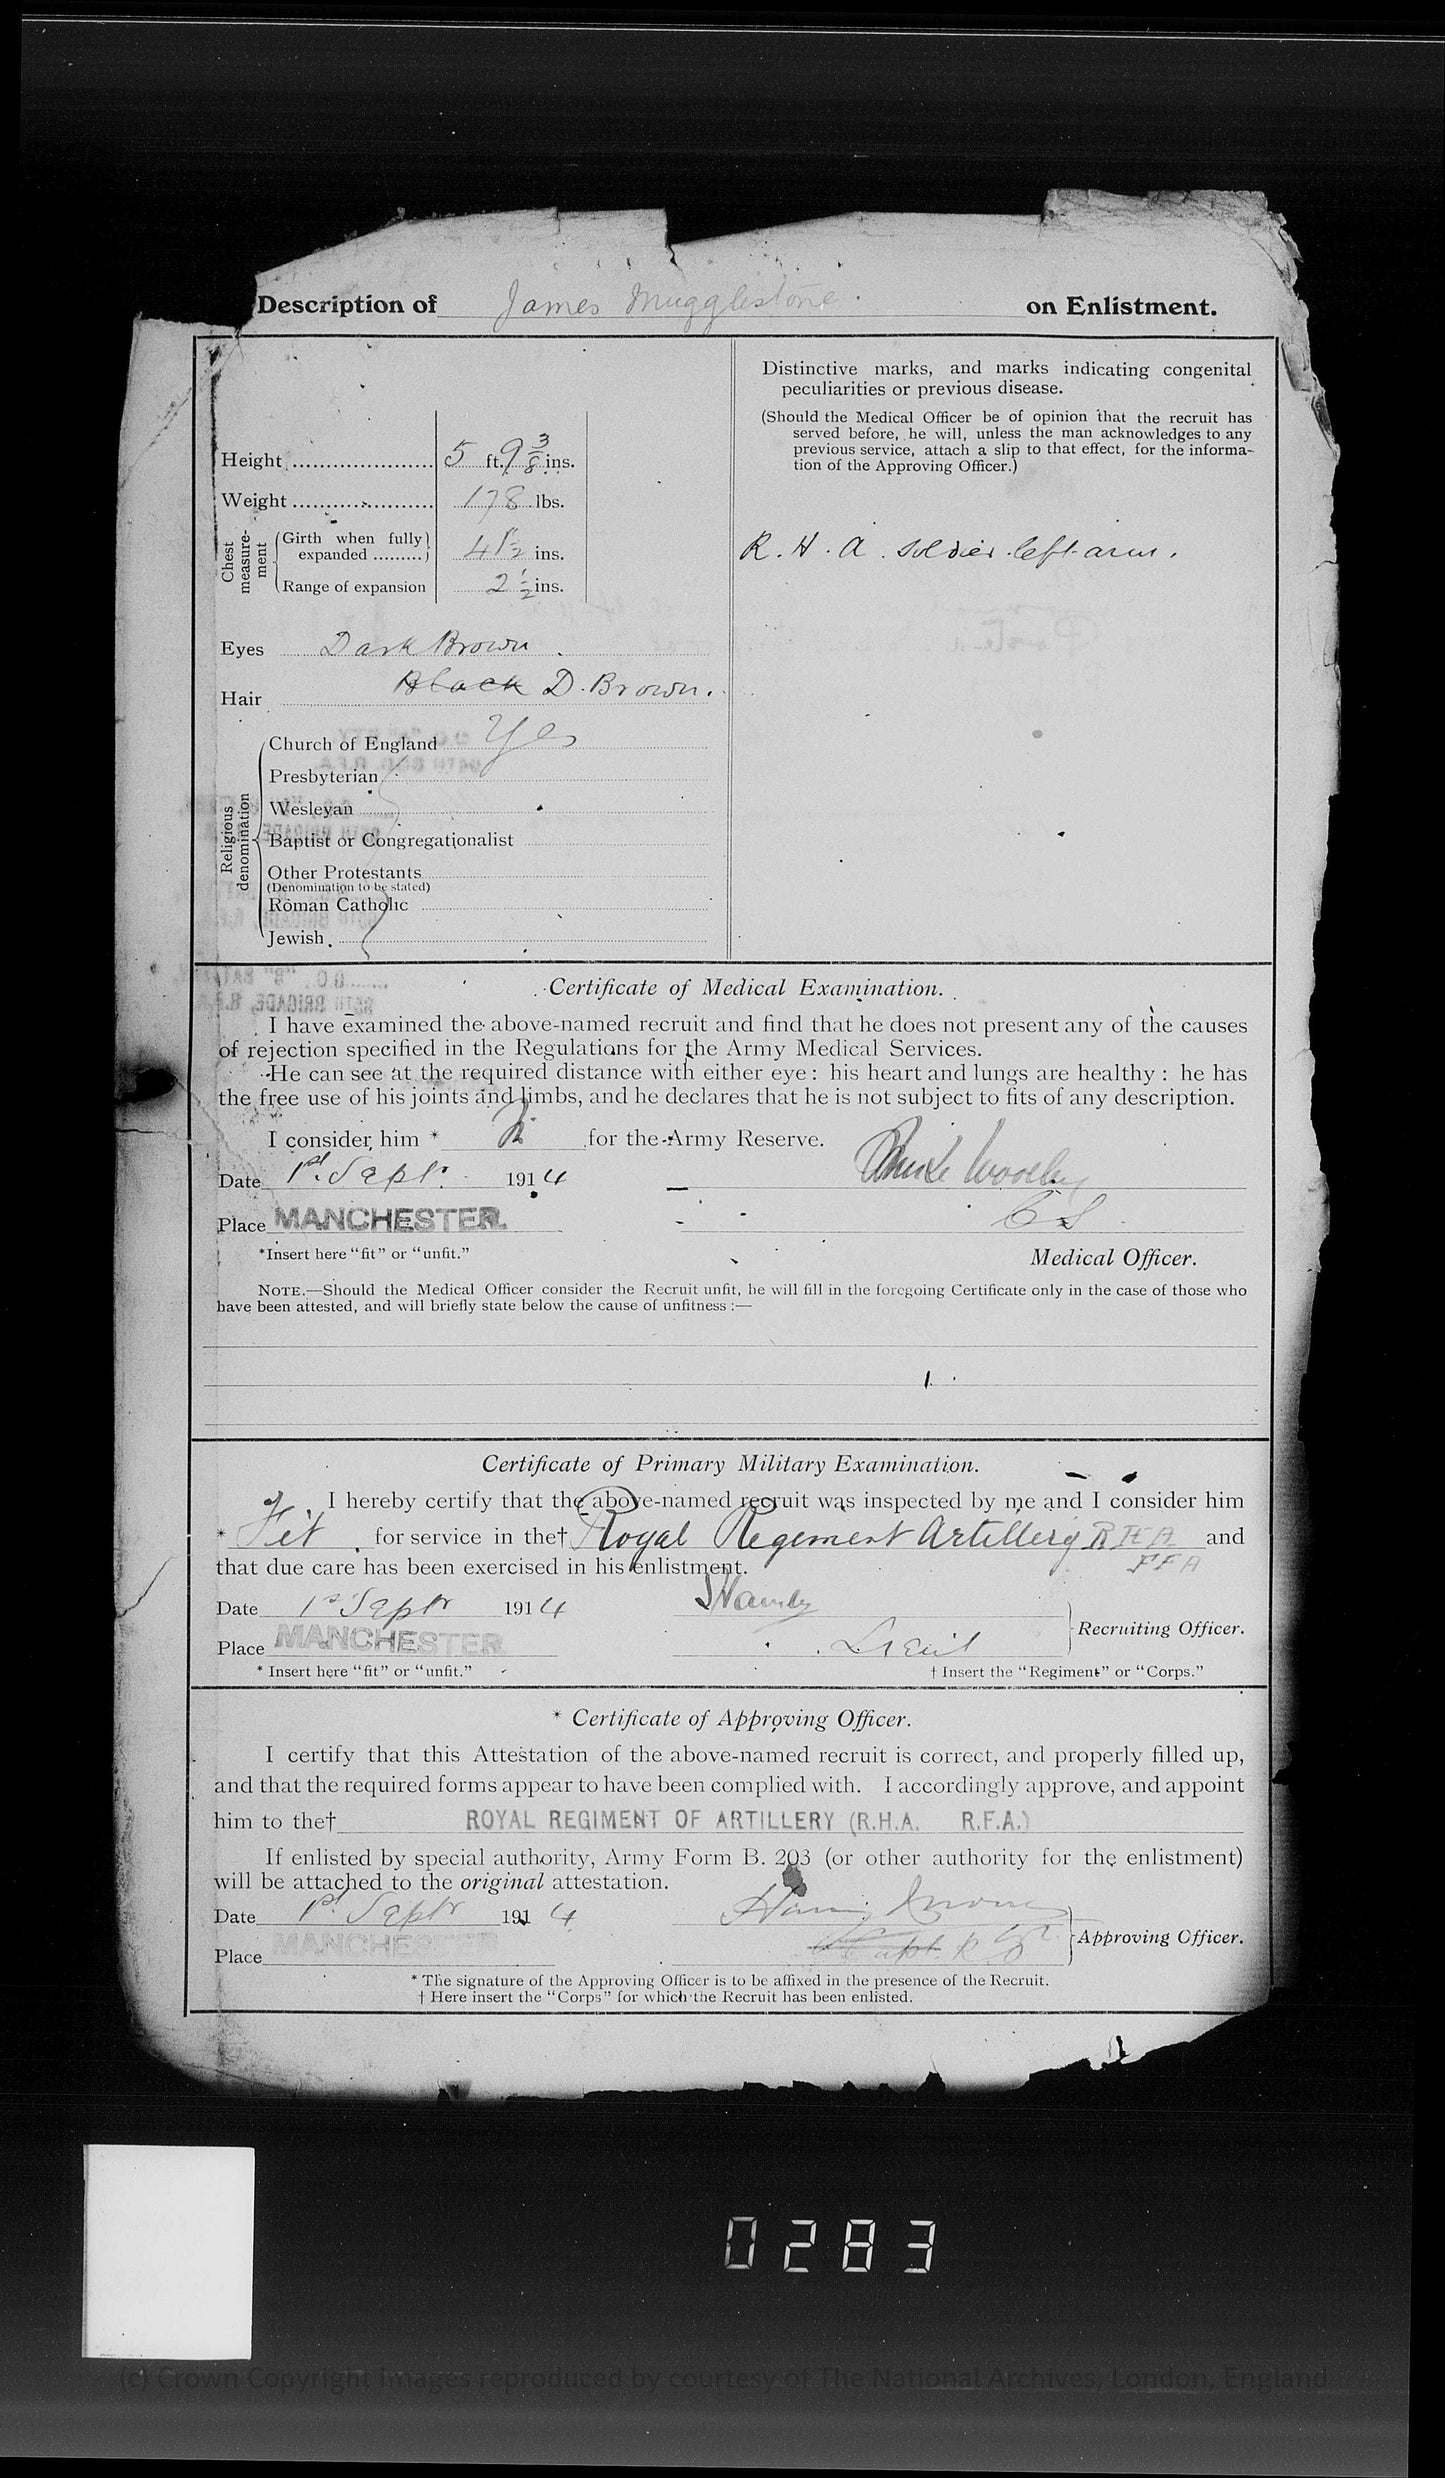 Description of James Mugglestone. on Enlistment.
Distinctive marks, and marks indicating congenital
peculiarities or previous disease.
(Should the Medical Officer be of opinion that the recruit has
served before, he will, unless the man acknowledges to any
previous service, attach a slip to that effect, for the informa-
tion of the Approving Officer.)
Height 5 ft. 9 3/8 ins.
Weight 178 lbs.
Chest measure-ment
Girth when fully
expanded 41 1/2 ins.
Range of expansion 2 1/2 ins.
R. H. A. soldier left arm.
Eyes Dark Brown.
Hair Black D. Brown.
Religious denomination
Church of England Yes
Presbyterian
Wesleyan
Baptist or Congregationalist
Other Protestants
(Denomination to be stated)
Roman Catholic
Jewish
Certificate of Medical Examination.
I have examined the above-named recruit and find that he does not present any of the causes
of rejection specified in the Regulations for the Army Medical Services.
He can see at the required distance with either eye: his heart and lungs are healthy: he has
the free use of his joints and limbs, and he declares that he is not subject to fits of any description.
I consider him * for the Army Reserve.
Date 1st Sept. 1914
Place MANCHESTER.
*Insert here "fit" or "unfit."
Medical Officer.
NOTE.—Should the Medical Officer consider the Recruit unfit, he will fill in the foregoing Certificate only in the case of those who
have been attested, and will briefly state below the cause of unfitness :—
Certificate of Primary Military Examination.
I hereby certify that the above-named recruit was inspected by me and I consider him
* Fit for service in the† Royal Regiment Artillery R H A and
that due care has been exercised in his enlistment.
Date 1st Septr 1914
Place MANCHESTER
Lieut
Recruiting Officer.
* Insert here "fit" or "unfit."
† Insert the "Regiment" or "Corps."
* Certificate of Approving Officer.
I certify that this Attestation of the above-named recruit is correct, and properly filled up,
and that the required forms appear to have been complied with. I accordingly approve, and appoint
him to the† ROYAL REGIMENT OF ARTILLERY (R.H.A. R.F.A.)
If enlisted by special authority, Army Form B. 203 (or other authority for the enlistment)
will be attached to the original attestation.
Date 1st Septr 1914
Place MANCHESTER
Approving Officer.
* The signature of the Approving Officer is to be affixed in the presence of the Recruit.
† Here insert the "Corps" for which the Recruit has been enlisted.
0283
(c) Crown Copyright Images reproduced by courtesy of The National Archives, London, England